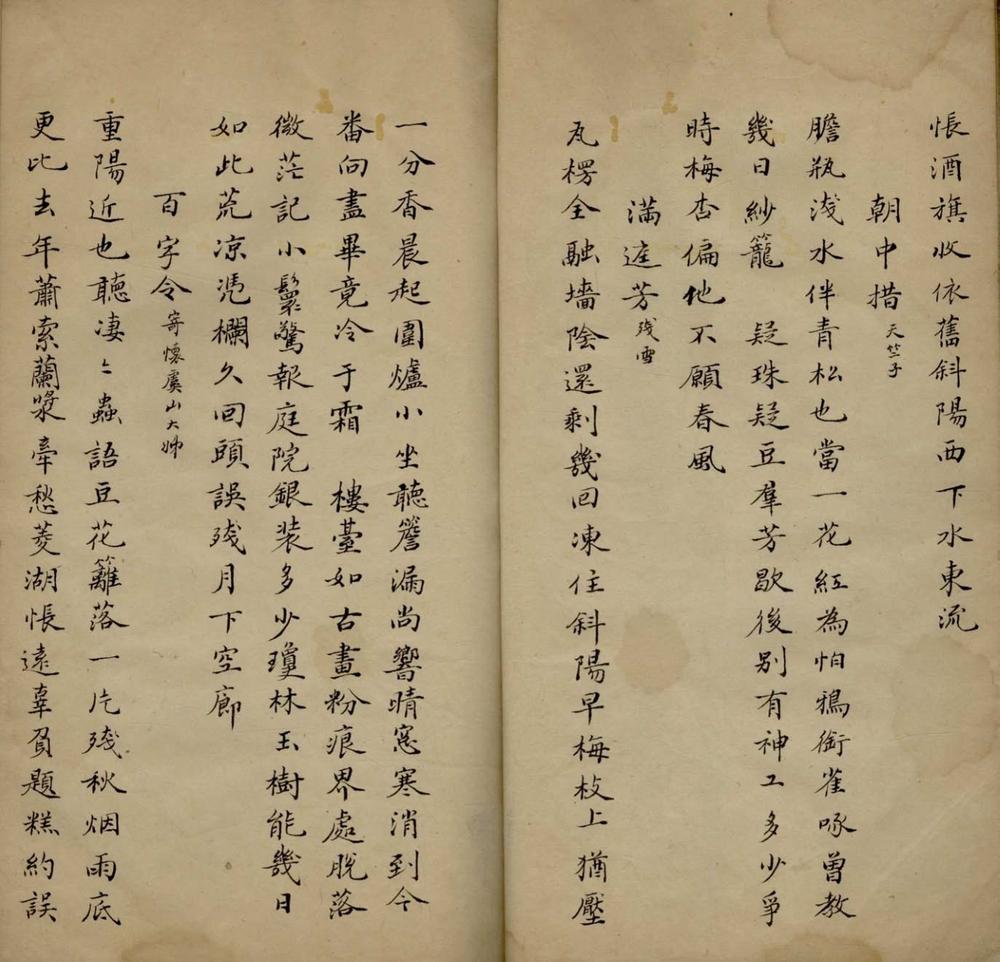 悵酒旗收依舊斜陽西下水東流
朝中措 天竺子
膽瓶淺水伴青松也當一花紅為怕鴉銜雀啄曾教
幾日紗籠　疑珠疑豆羣芳歇後別有神工多少爭
時梅杏偏他不願春風
滿庭芳 殘雪
瓦楞全融墻陰還剩幾回凍住斜陽早梅枝上猶壓
一分香晨起圍爐小坐聽簷漏尚響晴窓寒消到今
番向盡畢竟冷于霜　樓臺如古畫粉痕界處脫落
微茫記小鬟驚報庭院銀裝多少瓊林玉樹能幾日
如此荒凉凭欄久回頭誤殘月下空廊
百字令 寄懷虞山大姊
重陽近也聽淒〻蟲語豆花籬落一片殘秋烟雨底
更比去年蕭索蘭槳牽愁菱湖悵遠辜負題糕約誤